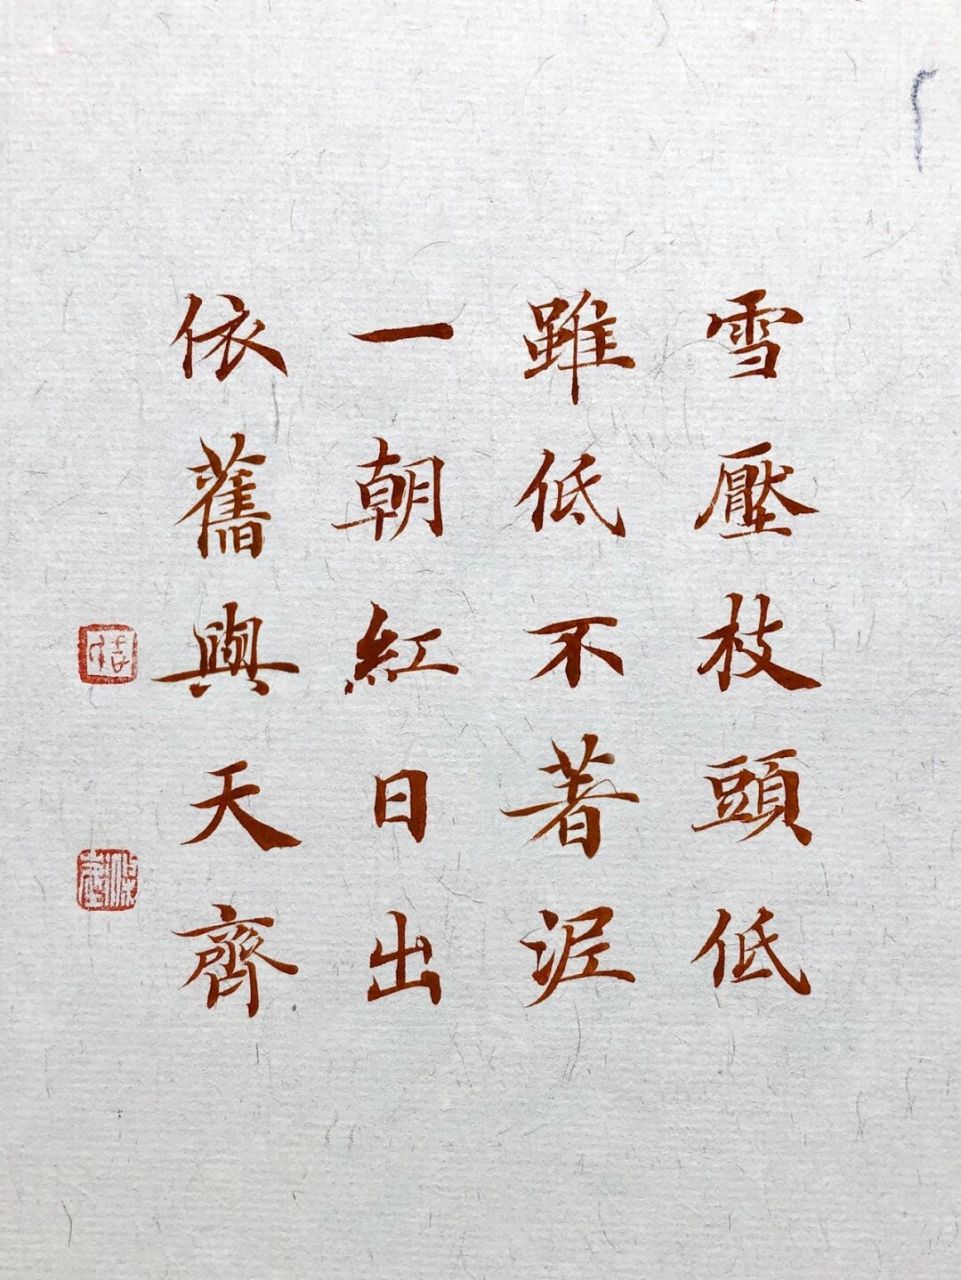 雪壓枝頭低
雖低不著泥
一朝紅日出
依舊與天齊